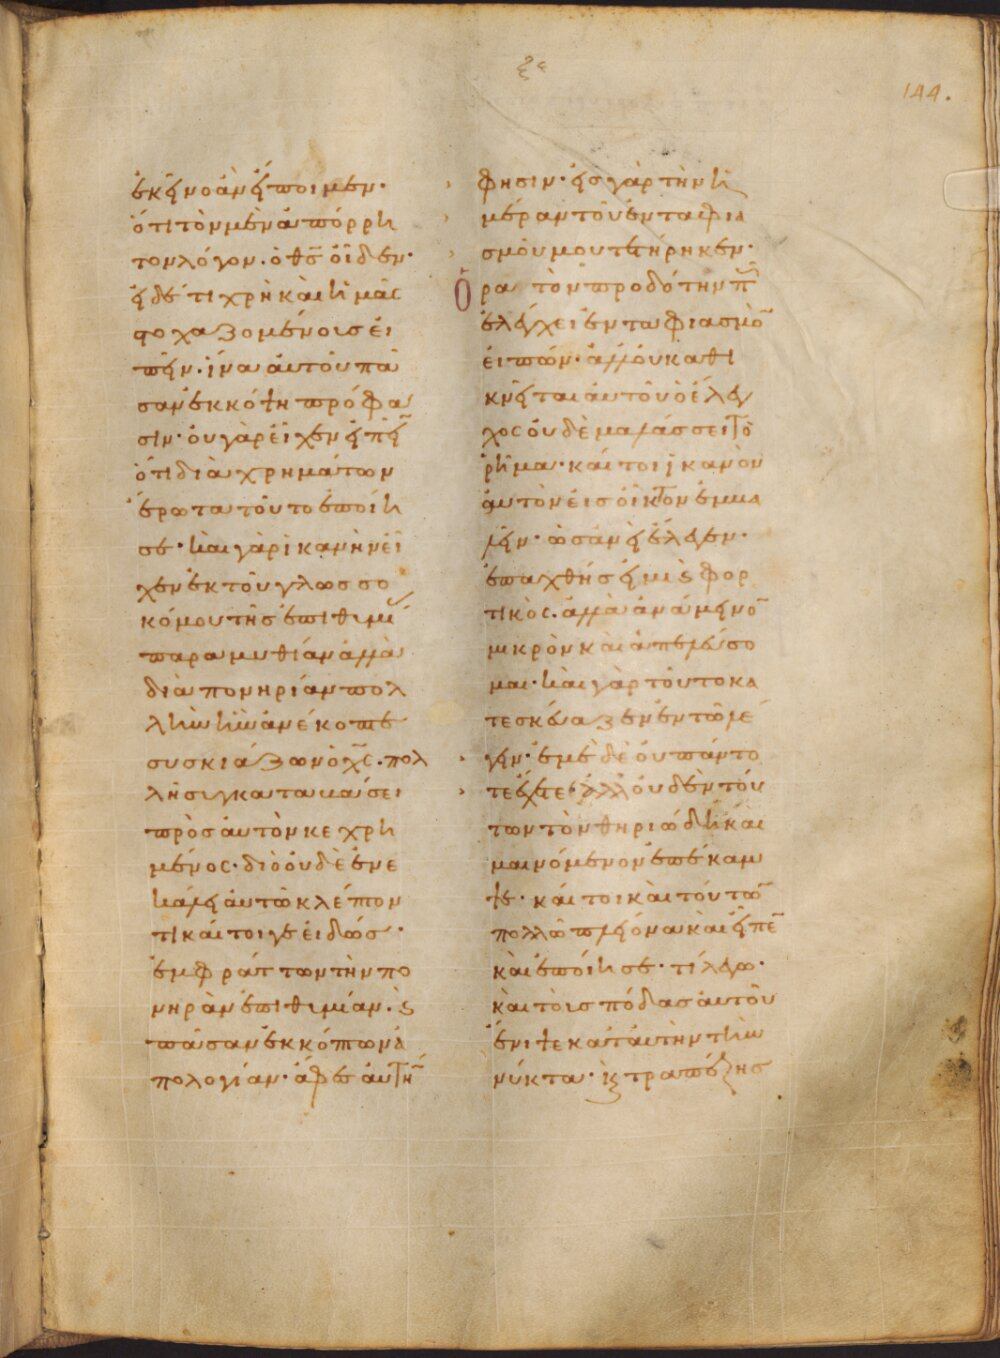 ξε
144.
ἐκεῖνο ἂν εἴποιμεν·
ὅτι τὸν μὲν ἀπόρρη
τον λόγον. ὁ θς οἶδεν·
εἰ δέ τι χρὴ καὶ ἡμᾶς
στοχαζομένοισ εἰ
πεῖν. ἵνα αὐτοῦ πᾶ
σαν ἐκκόψη πρόφα
σιν· οὐ γὰρ εἶχεν εἰπεῖ
ὅτι διὰ χρημάτων
ἔρωτα τοῦτο ἐποίη
σε· καὶ γὰρ ἱκανὴν εἶ
χεν ἐκ τοῦ γλωσσο
κόμου τῆσ ἐπιθυμί
παραμυθίαν ἀλλὰ
διὰ πονηρίαν πολ
λὴν ἣν ἀνέκοπτε
συσκιάζων ὁ χς. πολ
λῆ συγκαταβάσει
πρὸσ αὐτὸν κεχρη
μένος· διὸ οὐδὲ ἐνε
κάλει αὐτῶ κλέπτον
τι καίτοιγε εἰδώσ·
ἐμφράττων τὴν πο
νηρὰν ἐπιθυμίαν. ϗ
πᾶσαν ἐκκόπτων ἀ
πολογίαν· ἄφεσ αὐτὴ
φησιν· εἰσ γὰρ τὴν ἡ
μέραν τοῦ ἐνταφια
σμοῦ μου τετήρηκεν·
Ορα τὸν προδότην π
ἐλέγχει ἐνταφιασμὸ
εἰπών· ἀλλ' οὐ καθι
κνεῖται αὐτοῦ ὁ ἔλεγ
χος οὐδὲ μαλάσσει τὸ
ῥῆμα· καίτοι ἱκανὸν
αὐτὸν εἰσ οἶκτον ἐμβα
λεῖν· ὡσανεὶ ἔλεγεν·
ἐπαχθήσ εἰμι ϗ φορ
τικός. ἀλλὰ ἀνάμεινο
μικρὸν καὶ ἀπελεύσο
μαι· καὶ γὰρ τοῦτο κα
τεσκεύαζεν ἐν τῶ λέ
γειν· ἐμὲ δὲ οὐ πάντο
τε ἔχετε· ἀλλ' οὐδὲν τού
των τὸν θηριώδη καὶ
μαινόμενον ἐπέκαμ
ψε· καίτοι καὶ τούτω
πολλῶ πλείονα καὶ εἶπε
καὶ ἐποίησε· τί λέγω·
καὶ τοὺσ πόδασ αὐτοῦ
ἔνιψε κατ' αὐτὴν τὴν
νύκτα· ϗ τραπέζησ